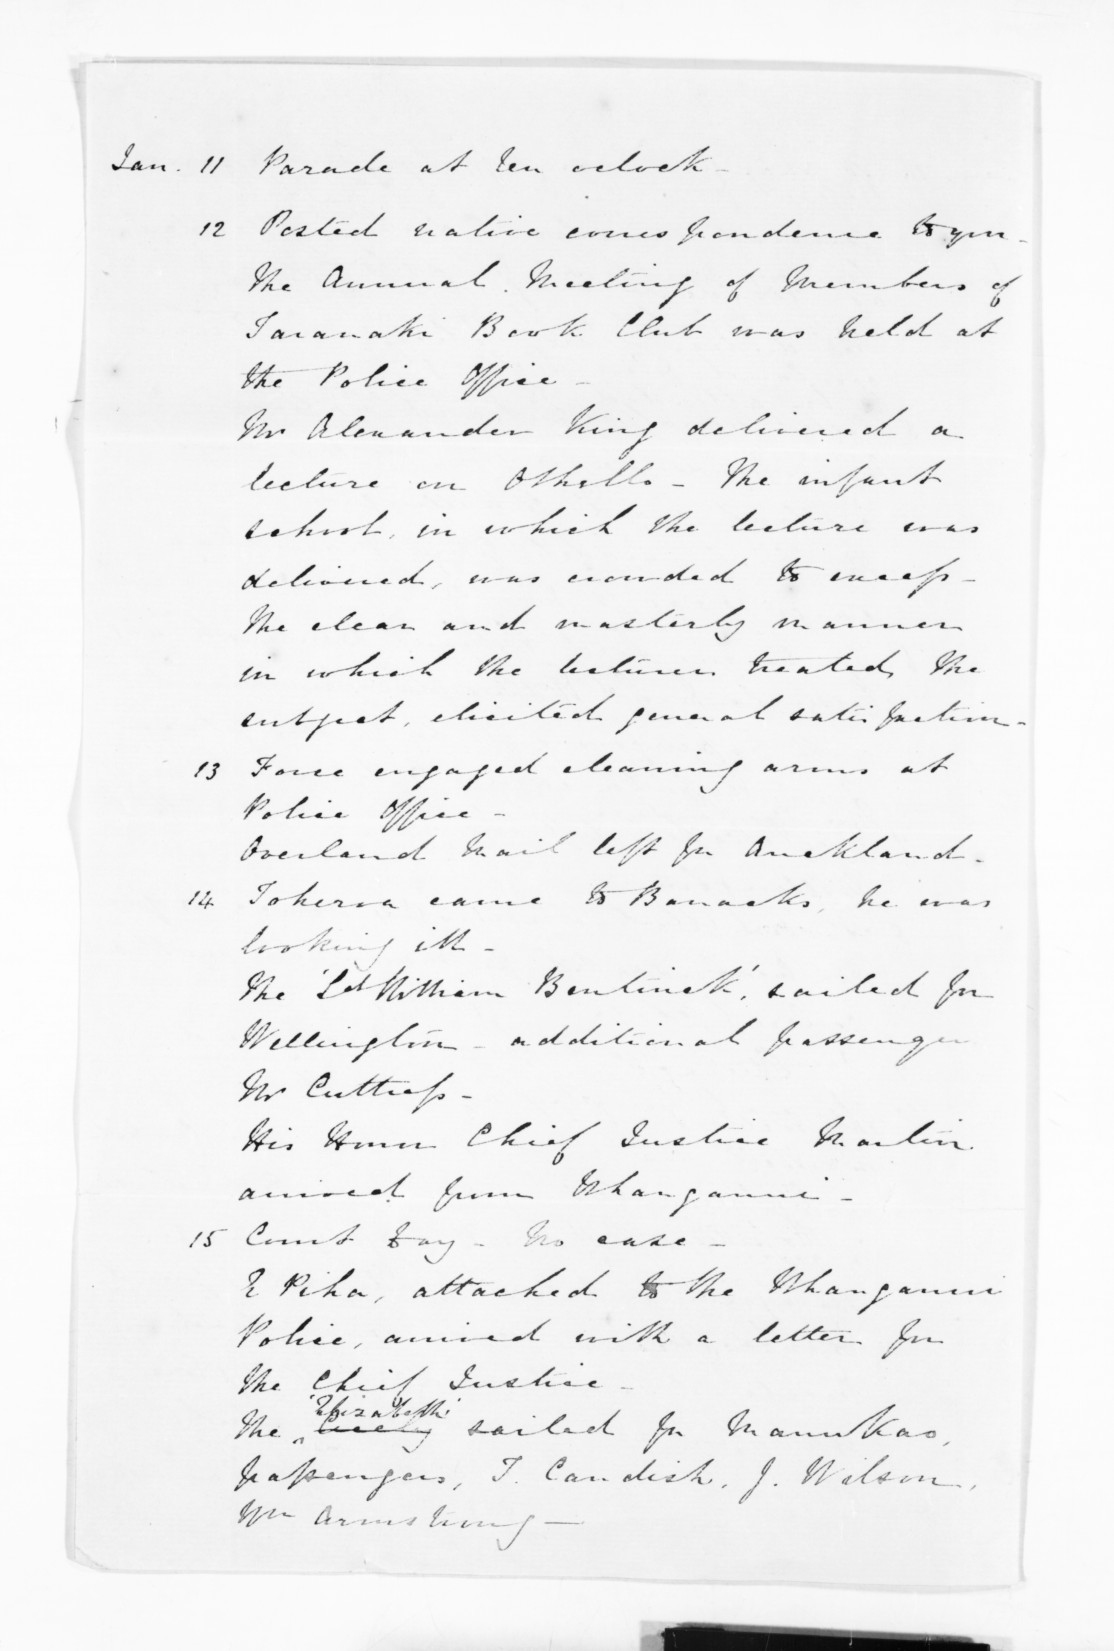 Jan. 11 Parade at ten oclock -
12 Posted native correspondence to you -
The Annual Meeting of Members of
Taranaki Book Club was held at
the Police Office -
Mr Alexander King delivered a
lecture on Othello - The infant
school, in which the lecture was
delivered, was crowded to excess -
The clear and masterly manner
in which the lecturer treated the
subject, elicited general satisfaction -
13 Force engaged cleaning arms at
Police Office -
Overland Mail left for Auckland -
14 Tokeroa came to Barracks, he was
looking ill -
The 'Ld William Bentinck', sailed for
Wellington - additional passenger
Mr Cuttress -
His Honor Chief Justice Martin
arrived from Whanganui -
15 Court Day - No case -
E Piha, attached to the Whanganui
Police, arrived with a letter for
the Chief Justice -
'Elizabeth'
The sailed for Manukao,
passengers, T. Candish, J. Wilson,
Wm Armstrong -